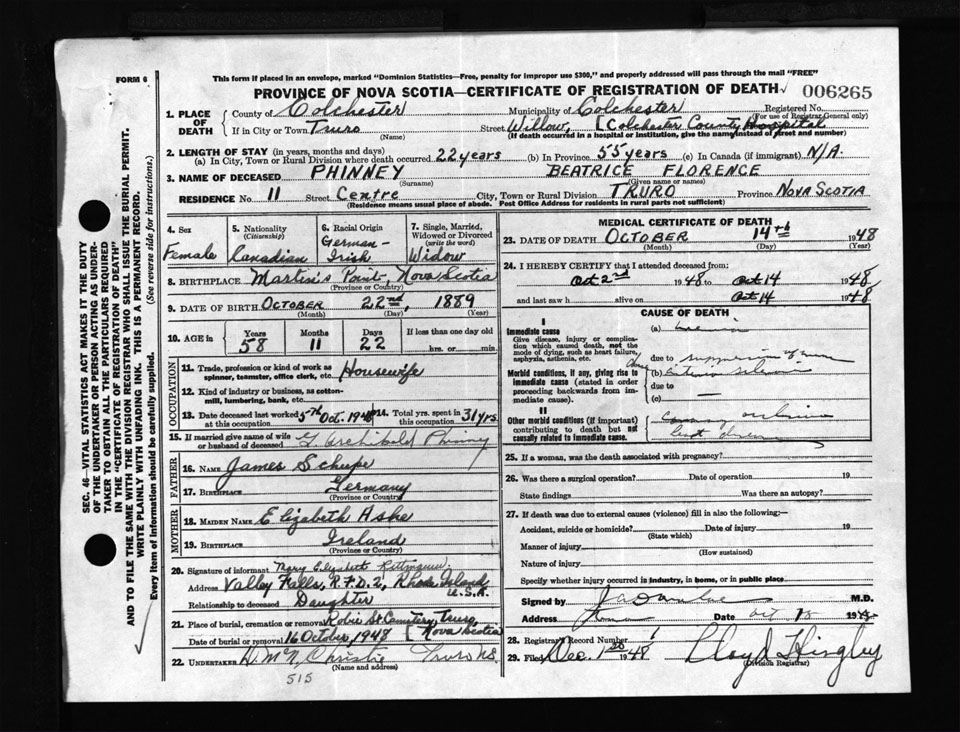 FORM 6
This form if placed in an envelope, marked "Dominion Statistics—Free, penalty for improper use $300," and properly addressed will pass through the mail "FREE"
PROVINCE OF NOVA SCOTIA—CERTIFICATE OF REGISTRATION OF DEATH 006265
SEC. 46—VITAL STATISTICS ACT MAKES IT THE DUTY
OF THE UNDERTAKER OR PERSON ACTING AS UNDER-
TAKER TO OBTAIN ALL THE PARTICULARS REQUIRED
IN THE "CERTIFICATE OF REGISTRATION OF DEATH"
AND TO FILE THE SAME WITH THE DIVISION REGISTRAR WHO SHALL ISSUE THE BURIAL PERMIT.
WRITE PLAINLY WITH UNFADING INK. THIS IS A PERMANENT RECORD.
Every item of information should be carefully supplied. (See reverse side for instructions.)
1. PLACE OF DEATH County of Colchester Municipality of Colchester Registered No.
(For use of Registrar General only)
If in City or Town Truro (Name) Street Willow, (Colchester County Hospital
(If death occurred in a hospital or institution, give the name instead of street and number)
2. LENGTH OF STAY (in years, months and days)
(a) In City, Town or Rural Division where death occurred 22 years (b) In Province 55 years (c) In Canada (if immigrant) N/A.
3. NAME OF DECEASED PHINNEY BEATRICE FLORENCE
(Surname) (Given name or names)
RESIDENCE No 11 Street Centre City, Town or Rural Division TRURO Province NOVA SCOTIA
(Residence means usual place of abode. Post Office Address for residents in rural parts not sufficient)
4. Sex Female
5. Nationality (Citizenship) Canadian
6. Racial Origin German-Irish
7. Single, Married, Widowed or Divorced (write the word) Widow
8. BIRTHPLACE Martin's Point, Nova Scotia
(Province or Country)
9. DATE OF BIRTH OCTOBER 22nd, 1889
(Month) (Day) (Year)
10. AGE in Years 58 Months 11 Days 22 If less than one day old hrs. or min.
OCCUPATION
11. Trade, profession or kind of work as spinner, teamster, office clerk, etc. Housewife
12. Kind of industry or business, as cotton-mill, lumbering, bank, etc.
13. Date deceased last worked at this occupation 5th Oct. 1948 14. Total yrs. spent in this occupation 31 yrs.
15. If married give name of wife or husband of deceased G. Archibald Phinney
FATHER
16. Name James Schupe
17. Birthplace Germany
(Province or Country)
MOTHER
18. MAIDEN NAME Elizabeth Ashe
19. BIRTHPLACE Ireland
(Province or Country)
20. Signature of informant Mary Elizabeth Rittmann
Address Valley Falls, R.F.D. 2, Rhode Island U.S.A.
Relationship to deceased Daughter
21. Place of burial, cremation or removal Robie St Cemetery, Truro, Nova Scotia
Date of burial or removal 16 October, 1948
22. UNDERTAKER D. McN. Christie Truro N.S.
(Name and address)
515
MEDICAL CERTIFICATE OF DEATH
23. DATE OF DEATH OCTOBER 14th 1948
(Month) (Day) (Year)
24. I HEREBY CERTIFY that I attended deceased from:
Oct 2nd 1948 to Oct 14 1948
and last saw h alive on Oct 14 1948
CAUSE OF DEATH
I
Immediate cause
Give disease, injury or complication which caused death, not the mode of dying, such as heart failure, asphyxia, asthenia, etc.
(a)
due to
Morbid conditions, if any, giving rise to immediate cause (stated in order proceeding backwards from immediate cause).
(b)
due to
(c) —
II
Other morbid conditions (if important) contributing to death but not causally related to immediate cause.
25. If a woman, was the death associated with pregnancy?
26. Was there a surgical operation? Date of operation 19
State findings Was there an autopsy?
27. If death was due to external causes (violence) fill in also the following:—
Accident, suicide or homicide? Date of injury 19
(State which)
Manner of injury
(How sustained)
Nature of injury
Specify whether injury occurred in industry, in home, or in public place
Signed by M.D.
Address Date Oct 19
28. Registrar's Record Number
29. Filed Dec. 1st 1948 Lloyd Hingley
(Division Registrar)